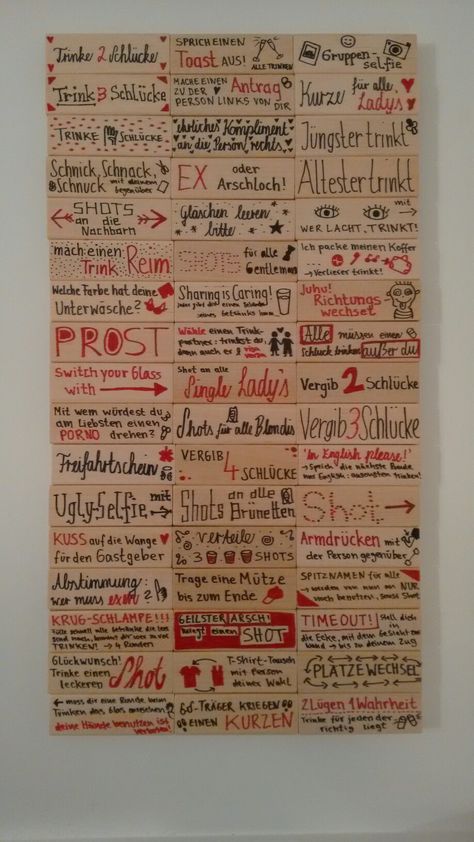 Trinke 2 Schlücke
SPRICH EINEN
Toast AUS!
ALLE TRINKEN
Gruppen-
selfie
Trink 3 Schlücke
MACHE EINEN
ZU DER Antrag
PERSON LINKS VON DIR
Kurze für alle
Ladys
TRINKE SCHLÜCKE
ehrliches Kompliment
an die Person rechts
Jüngster trinkt
Schnick, Schnack,
Schnuck mit deinem
gegenüber
EX oder
Arschloch!
Ältester trinkt
SHOTS
an die
Nachbarn
Gläschen leeren
bitte
mit
WER LACHT, TRINKT!
mach einen
Trink Reim
SHOTS für alle
Gentlemen
Ich packe meinen Koffer
→ Verlierer trinkt!
Welche Farbe hat deine
Unterwäsche?
Sharing is Caring!
Juhu!
Richtungs-
wechsel
PROST
Wähle einen Trink-
partner: trinkst du,
dann auch er
Alle müssen einen
Schluck trinken außer du
Switch your Glass
with
Shot an alle
Single Lady's
Vergib 2 Schlücke
Mit wem würdest du
am Liebsten einen
PORNO drehen?
Shots für alle Blondis
Vergib 3 Schlücke
Freifahrtschein
VERGIB
4 SCHLÜCKE
"In English please!"
→ Sprich die nächste Runde
nur English, ansonsten trinken!
Ugly-Selfie mit
Shots an alle
Brünetten
Shot
KUSS auf die Wange
für den Gastgeber
verteile
3 SHOTS
Armdrücken mit
der Person gegenüber
Abstimmung:
wer muss exen?
Trage eine Mütze
bis zum Ende
SPITZNAMEN für alle
→ werden von nun an NUR
noch benutzen, sonst Shot
KRUG-SCHLAMPE!!!
TRINKEN! → 4 Runden
GEILSTER ARSCH!
kriegt einen SHOT
TIMEOUT! Stell dich in
die Ecke, mit dem Gesicht zur
Wand → bis zu deinem Zug
Glückwunsch!
Trinke einen
leckeren Shot
T-Shirt-Tausch
mit Person
deiner Wahl
PLATZWECHSEL
← muss dir eine Runde beim
Trinken das Glas ansetzen
deine Hände benutzen ist
verboten!
BH-TRÄGER KRIEGEN
EINEN KURZEN
2 Lügen 1 Wahrheit
Trinke für jeden der
richtig liegt